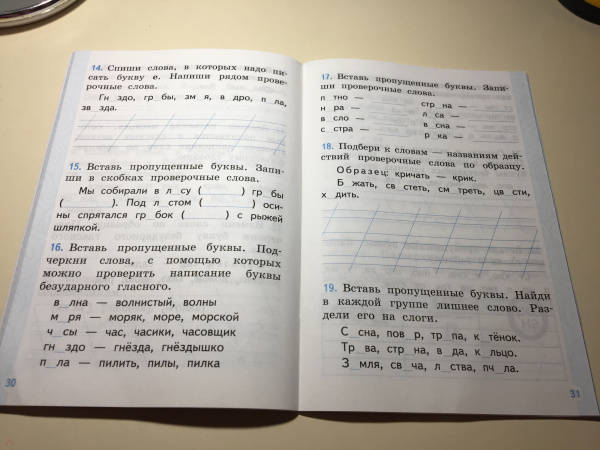 14. Спиши слова, в которых надо пи-
сать букву е. Напиши рядом прове-
рочные слова.
Гн_здо, гр_бы, зм_я, в_дро, п_ла,
зв_зда.
15. Вставь пропущенные буквы. Запи-
ши в скобках проверочные слова.
Мы собирали в л_су (        ) гр_бы
(        ). Под л_стом (        ) оси-
ны спрятался гр_бок (        ) с рыжей
шляпкой.
16. Вставь пропущенные буквы. Под-
черкни слова, с помощью которых
можно проверить написание буквы
безударного гласного.
в_лна — волнистый, волны
м_ря — моряк, море, морской
ч_сы — час, часики, часовщик
гн_здо — гнёзда, гнёздышко
п_ла — пилить, пилы, пилка
30
17. Вставь пропущенные буквы. Запи-
ши проверочные слова.
п_тно —        стр_на —
н_ра —        л_са —
в_сло —        в_сна —
с_стра —        р_ка —
18. Подбери к словам — названиям дей-
ствий проверочные слова по образцу.
Образец: кричать — крик.
Б_жать, св_стеть, см_треть, цв_сти,
х_дить.
19. Вставь пропущенные буквы. Найди
в каждой группе лишнее слово. Раз-
дели его на слоги.
С_сна, пов_р, тр_па, к_тёнок.
Тр_ва, стр_на, в_да, к_льцо.
З_мля, св_ча, л_ства, пч_ла.
31